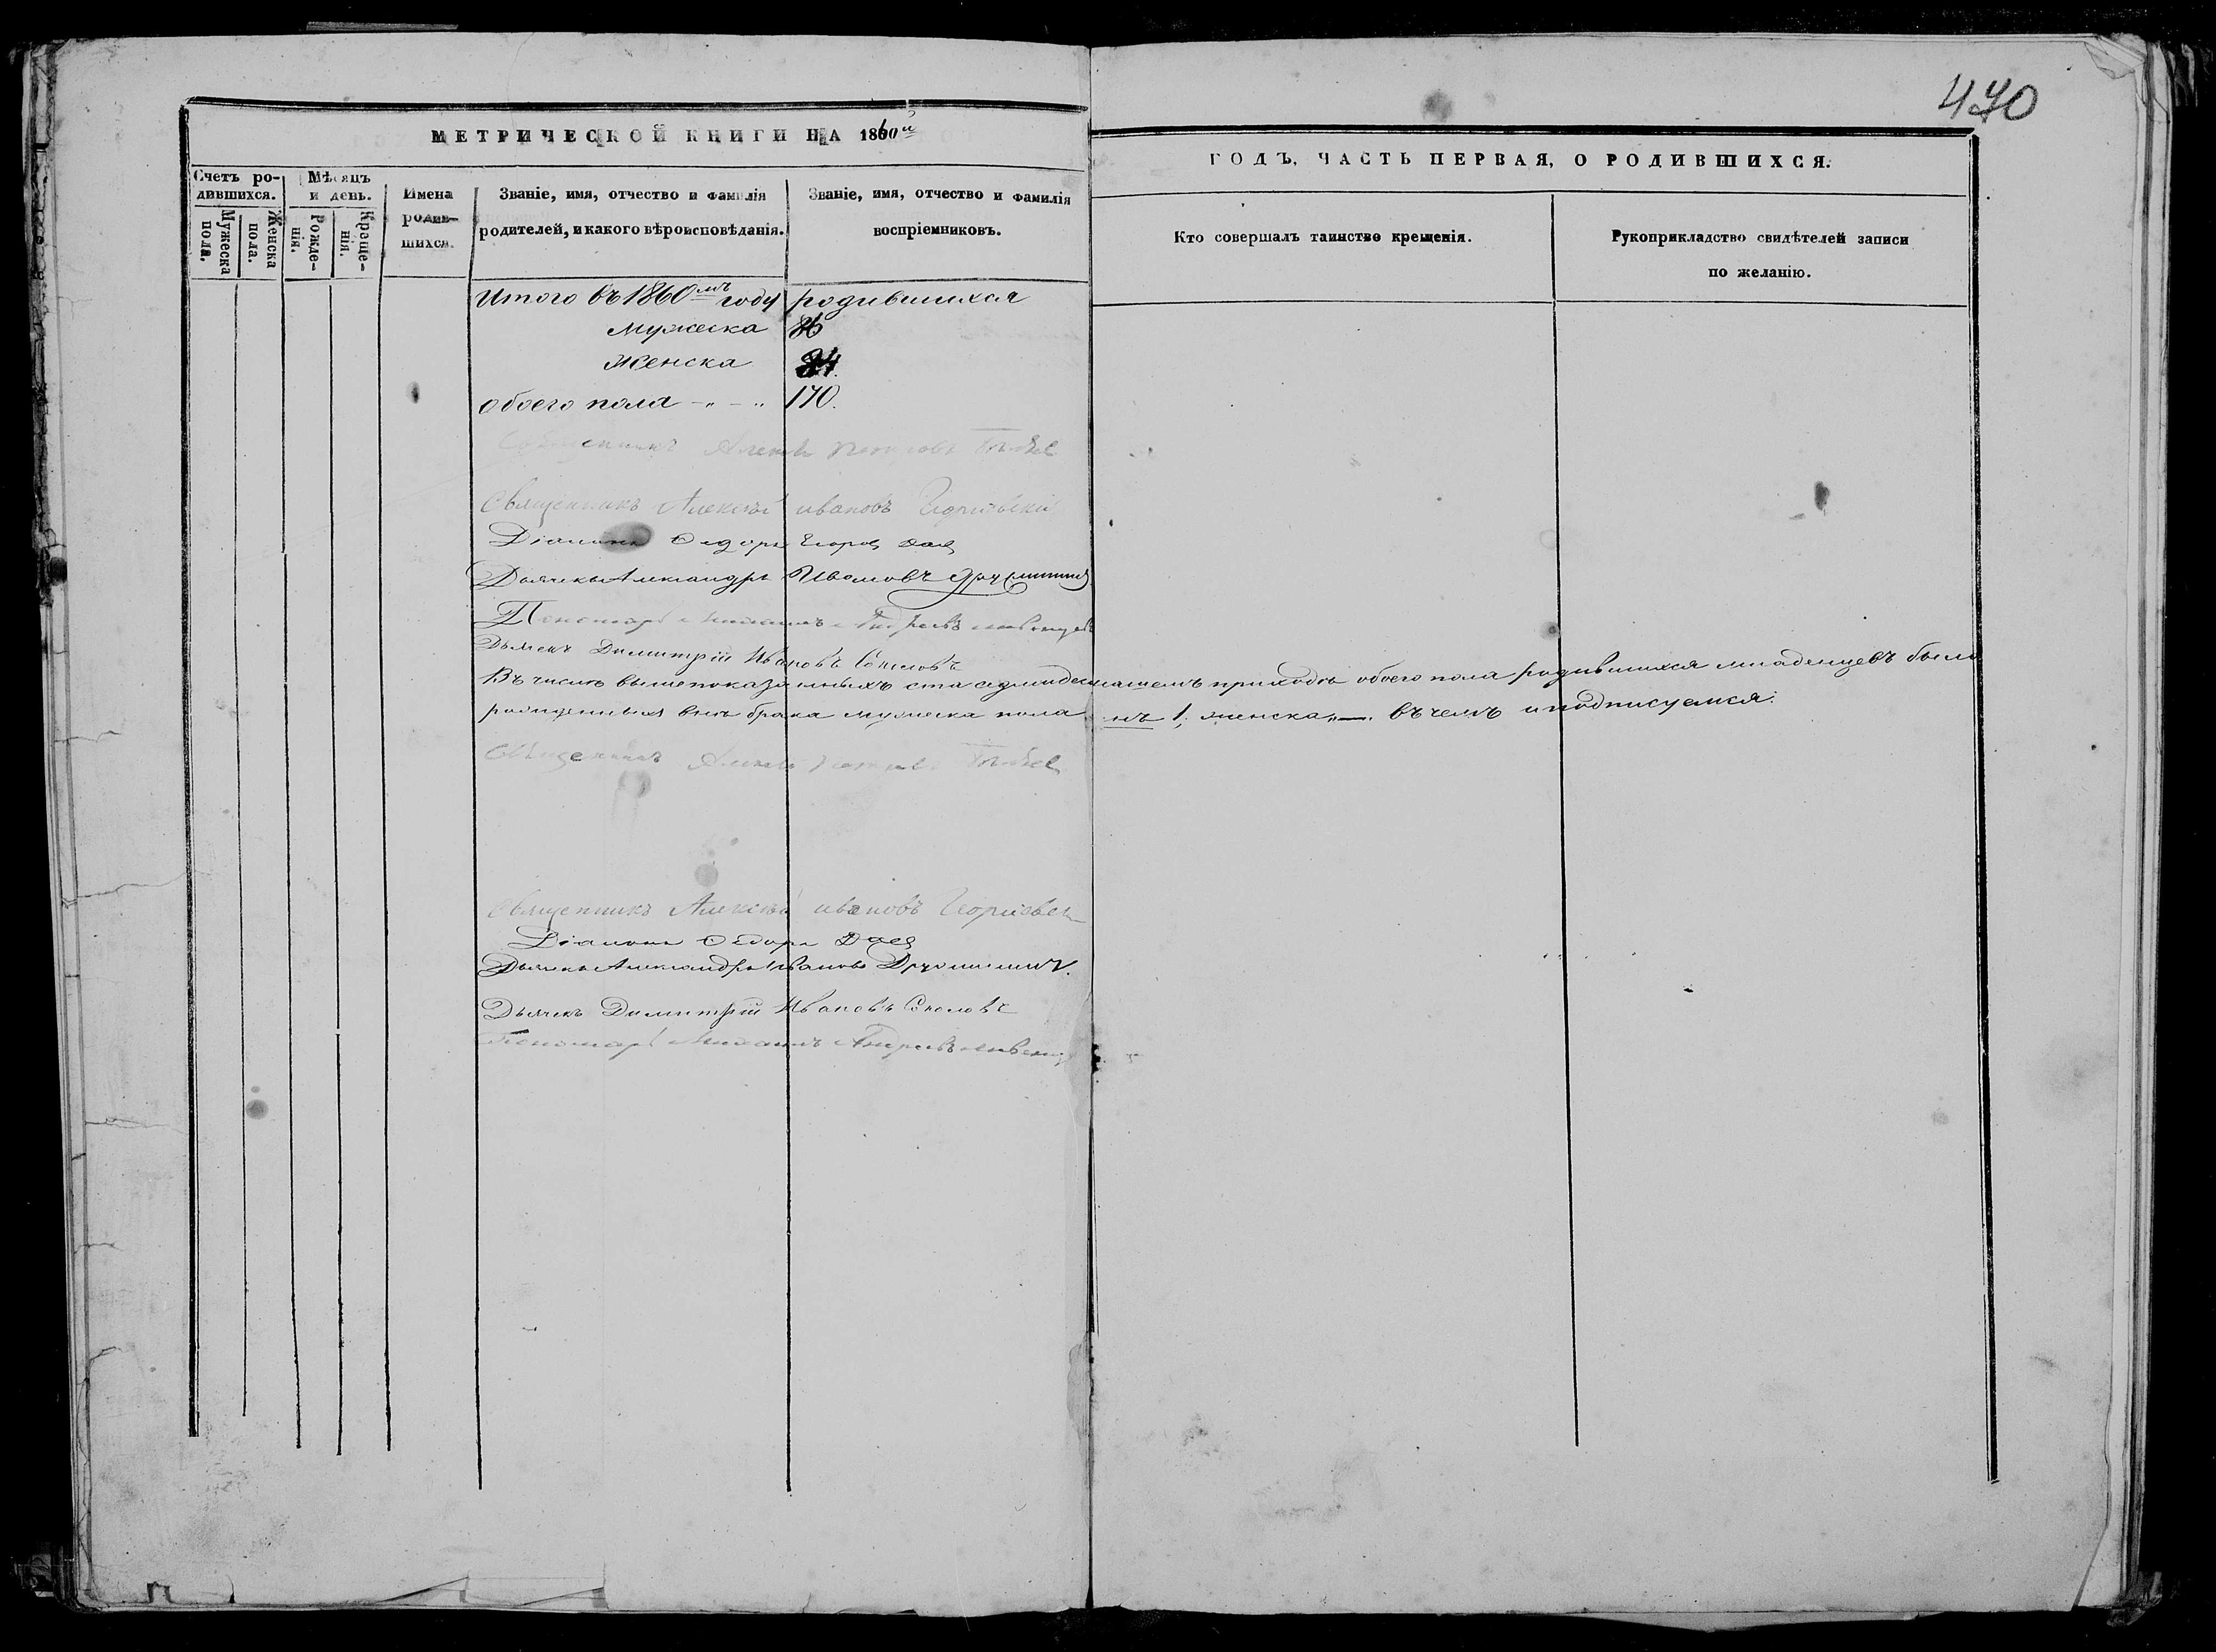 470
МЕТРИЧЕСКОЙ КНИГИ НА 1860й
ГОДЪ, ЧАСТЬ ПЕРВАЯ, О РОДИВШИХСЯ.
Счетъ ро-
дившихся.
Мужеска
пола.
Женска
пола.
Мѣсяцъ
и день.
Рожде-
нія.
Креще-
нія.
Имена
родив-
шихся.
Званіе, имя, отчество и фамилія
родителей, и какого вѣроисповѣданія.
Званіе, имя, отчество и фамилія
воспріемниковъ.
Кто совершалъ таинство крещенія.
Рукоприкладство свидѣтелей записи
по желанію.
Итого въ 1860мъ году родившихся
Мужеска 86
Женска 84.
обоего пола 170.
Священникъ
Священникъ Алексѣй Ивановъ
Діаконъ Ѳедоръ Егоровъ
Дьячекъ Александръ Ивановъ
Пономарь Михаилъ Андреевъ
Дьячекъ Димитрій Ивановъ Соколовъ
Въ числѣ вышепоказанныхъ ста нашемъ приходѣ обоего пола родившихся младенцевъ было
рожденныхъ внѣ брака мужеска пола 1, женска „—. въ чемъ и подписуемся.
Священникъ
Священникъ Алексѣй Ивановъ
Діаконъ Ѳедоръ
Дьячекъ Александръ Ивановъ
Дьячекъ Димитрій Ивановъ Соколовъ
Пономарь Михаилъ Андреевъ